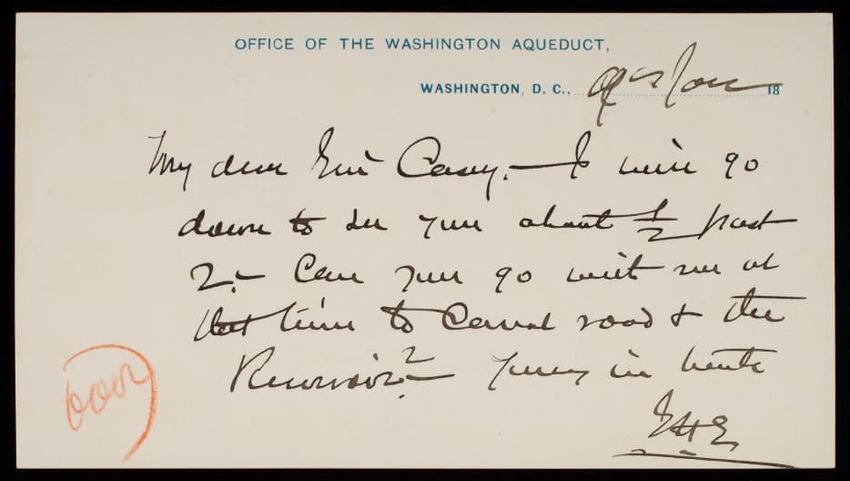 OFFICE OF THE WASHINGTON AQUEDUCT,
WASHINGTON, D. C., 18
My dear Gen Casey. — I will go
down to see you about 1/2 past
2. — Can you go with me at
that time to Canal road & the
Reservoir?
Yours in haste
over